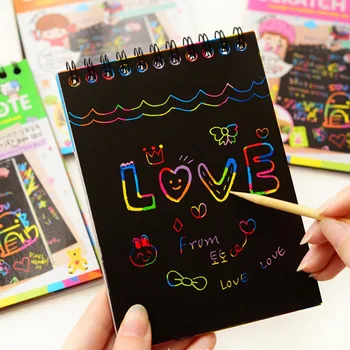 SCRATCH
OTE
LOVE
from
토토
LOVE LOVE